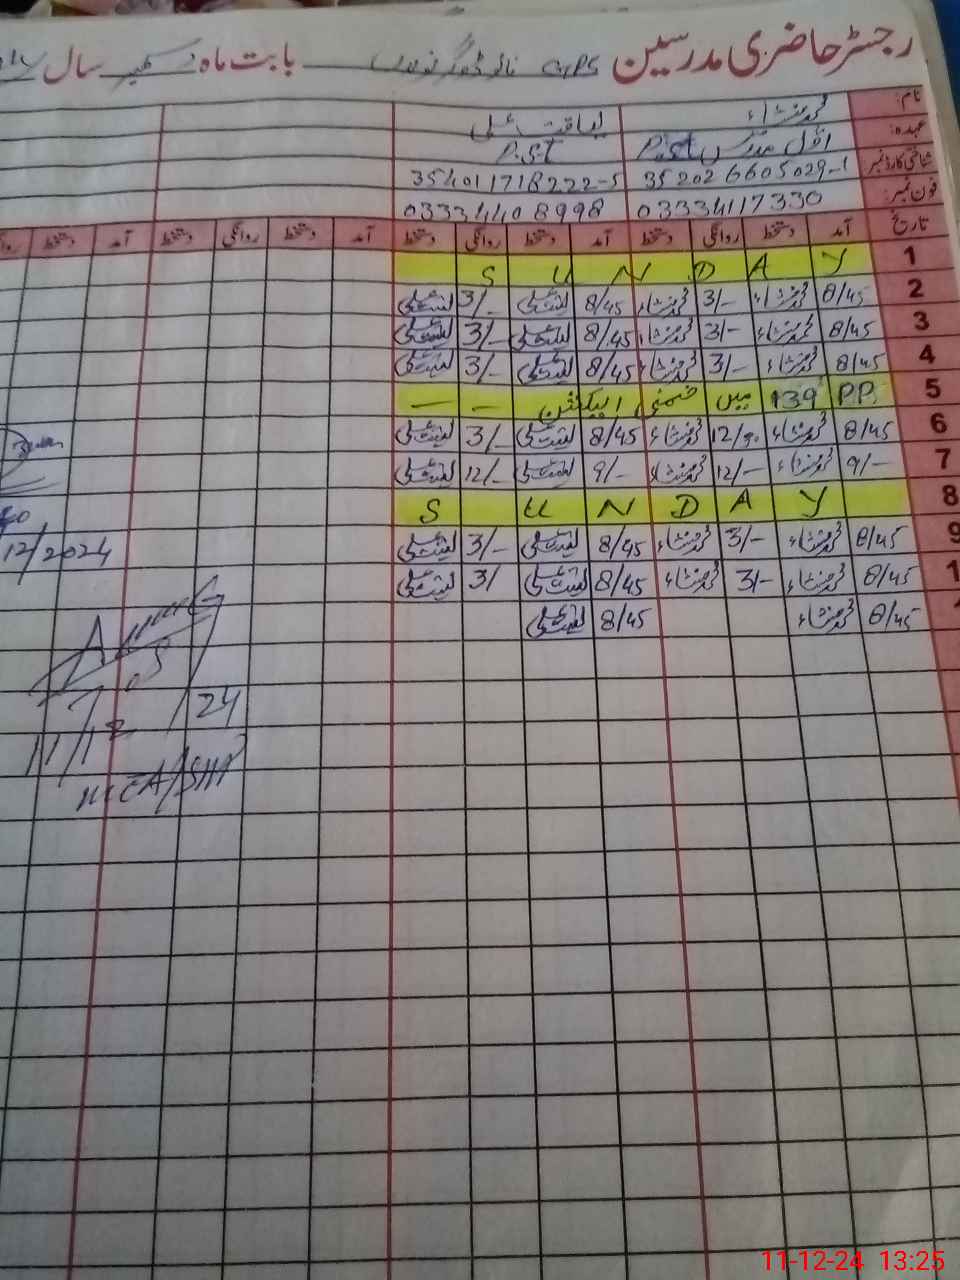 رجسٹر حاضری مدرسین GPS بابت ماہ دسمبر سال
نام: محمد منشاء لیاقت علی
عہدہ: اول مدرس P.st P.S.T
شناختی کارڈ نمبر 35202 6605029-1 354011718222-5
فون نمبر: 03334117330 03334408998
تاریخ آمد دستخط روانگی دستخط آمد دستخط روانگی دستخط آمد دستخط روانگی دستخط آمد دستخط
1 S U N D A Y
2 8/45 محمد منشاء 3/- محمد منشاء 8/45 لیاقت علی 3/- لیاقت علی
3 8/45 محمد منشاء 3/- محمد منشاء 8/45 لیاقت علی 3/- لیاقت علی
4 8/45 محمد منشاء 3/- محمد منشاء 8/45 لیاقت علی 3/- لیاقت علی
5 PP. 139 میں ضمنی الیکشن - -
6 8/45 محمد منشاء محمد منشاء 8/45 لیاقت علی 3/- لیاقت علی
7 9/- محمد منشاء 12/- محمد منشاء 9/- لیاقت علی 12/- لیاقت علی
8 S U N D A Y
9 8/45 محمد منشاء 3/- محمد منشاء 8/45 لیاقت علی 3/- لیاقت علی
1 8/45 محمد منشاء 3/- محمد منشاء 8/45 لیاقت علی 3/ لیاقت علی
8/45 محمد منشاء 8/45 لیاقت علی
12/2024
11/12/24
11-12-24 13:25